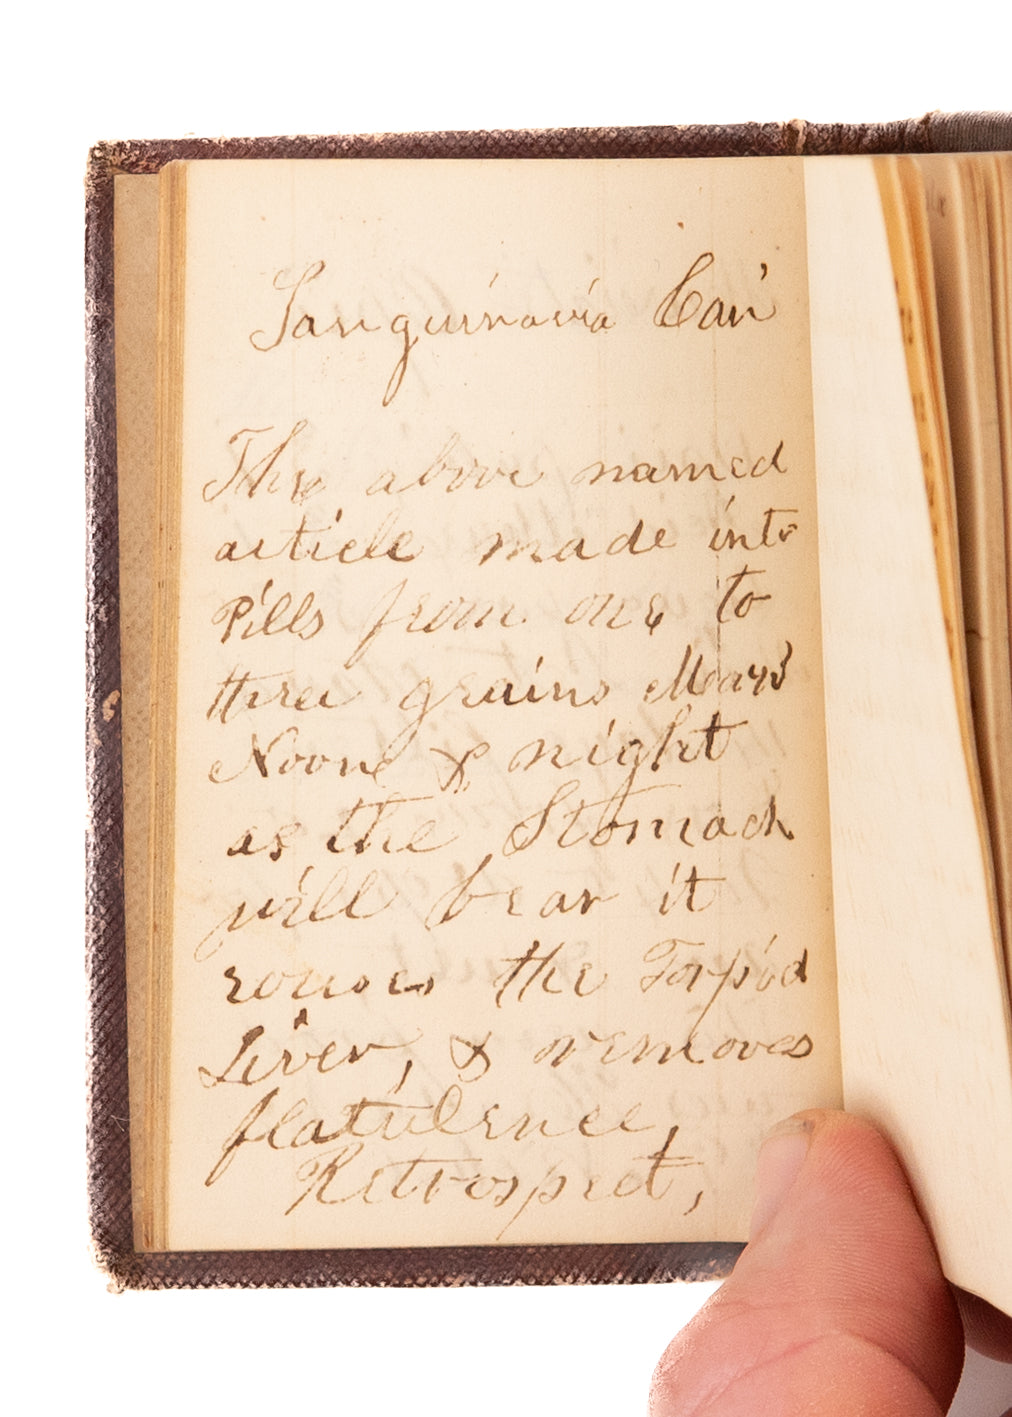 Sanguinaria Can
The above named
article made into
Pills from one to
three grains Morn
Noon & night
as the Stomach
will bear it
rouses the Torpid
Liver, & removes
flatulence,
Retrospect,